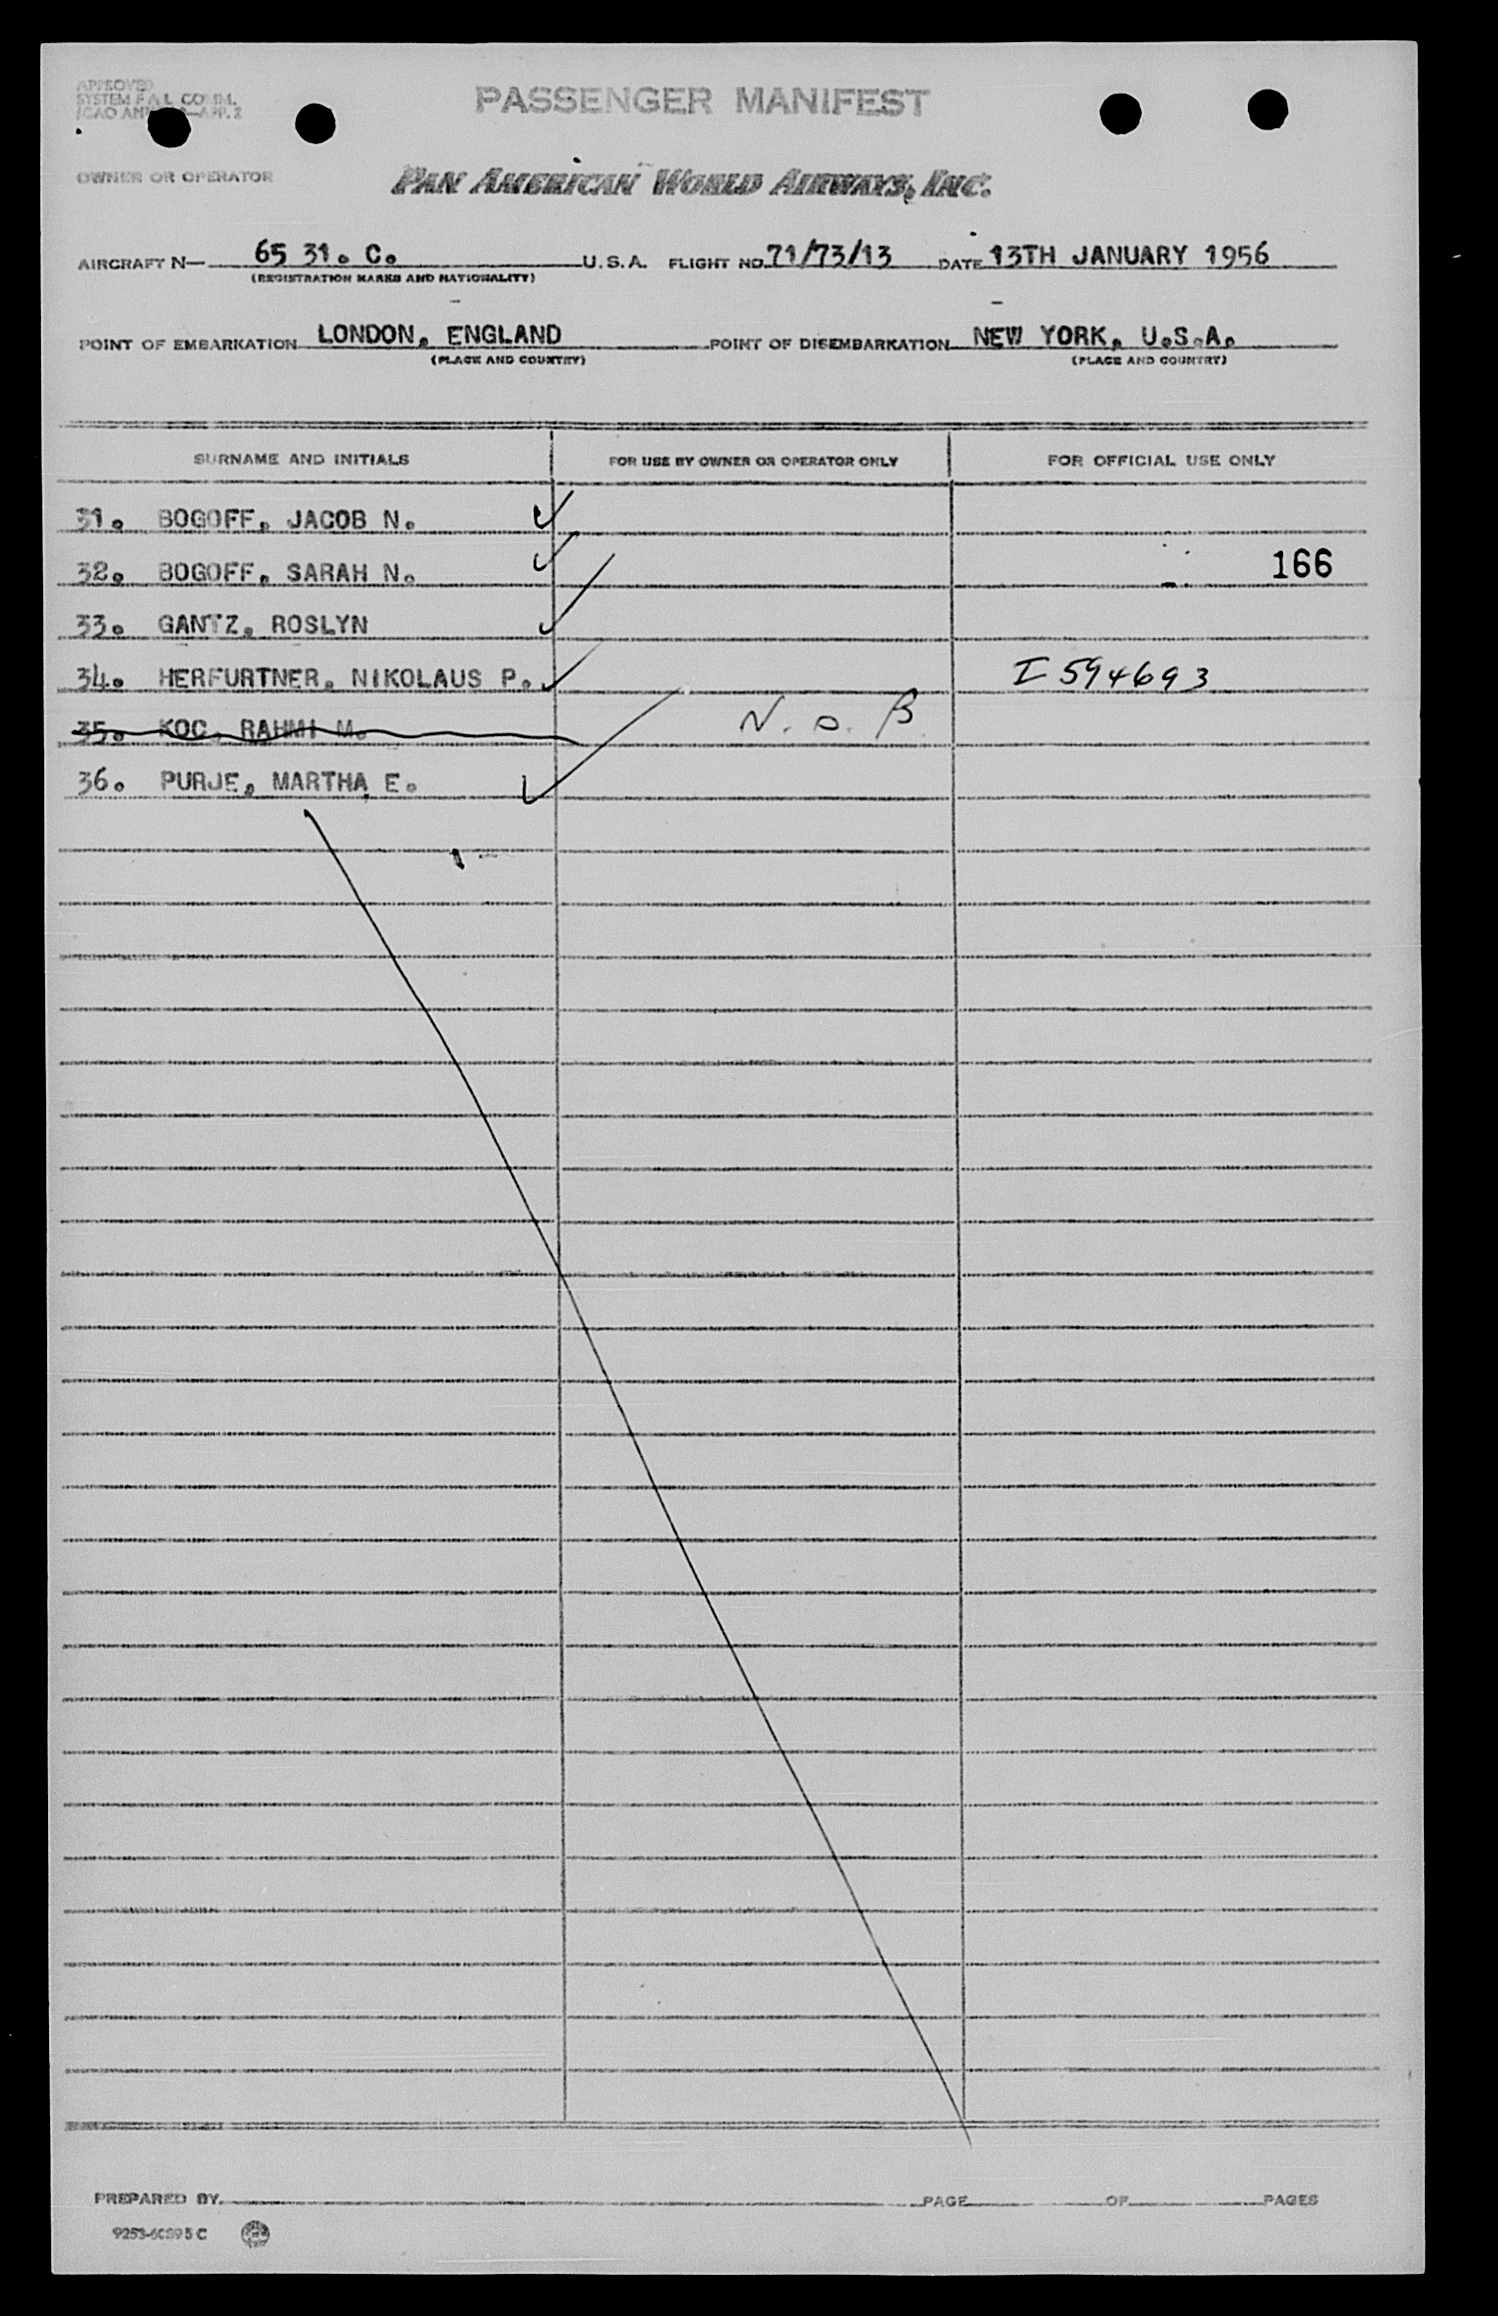 APPROVED
SYSTEM F.A.L. COMM.
PASSENGER MANIFEST
OWNER OR OPERATOR PAN AMERICAN WORLD AIRWAYS, INC.
AIRCRAFT N— 65 31. C. U.S.A. FLIGHT NO. 71/73/13 DATE 13TH JANUARY 1956
(REGISTRATION MARKS AND NATIONALITY)
POINT OF EMBARKATION LONDON, ENGLAND POINT OF DISEMBARKATION NEW YORK, U.S.A.
(PLACE AND COUNTRY) (PLACE AND COUNTRY)
SURNAME AND INITIALS FOR USE BY OWNER OR OPERATOR ONLY FOR OFFICIAL USE ONLY
31. BOGOFF, JACOB N.
32. BOGOFF, SARAH N. 166
33. GANTZ, ROSLYN
34. HERFURTNER, NIKOLAUS P. I 594693
35. KOC, RAHMI M. N. O. B
36. PURJE, MARTHA E.
PREPARED BY PAGE OF PAGES